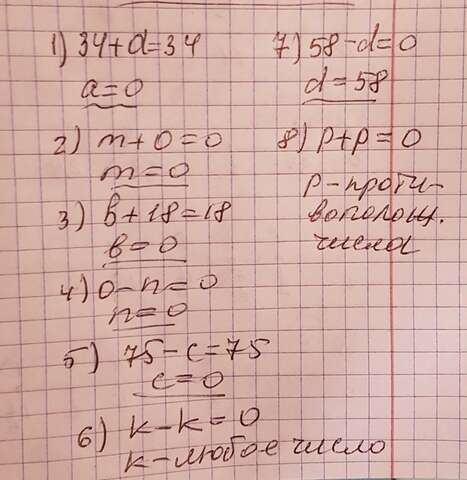 1) 34+a=34
a=0
2) m+0=0
m=0
3) в+18=18
в=0
4) 0-n=0
n=0
5) 75-с=75
с=0
6) к-к=0
к-любое число
7) 58-d=0
d=58
8) р+р=0
р-проти-
вополож.
числа